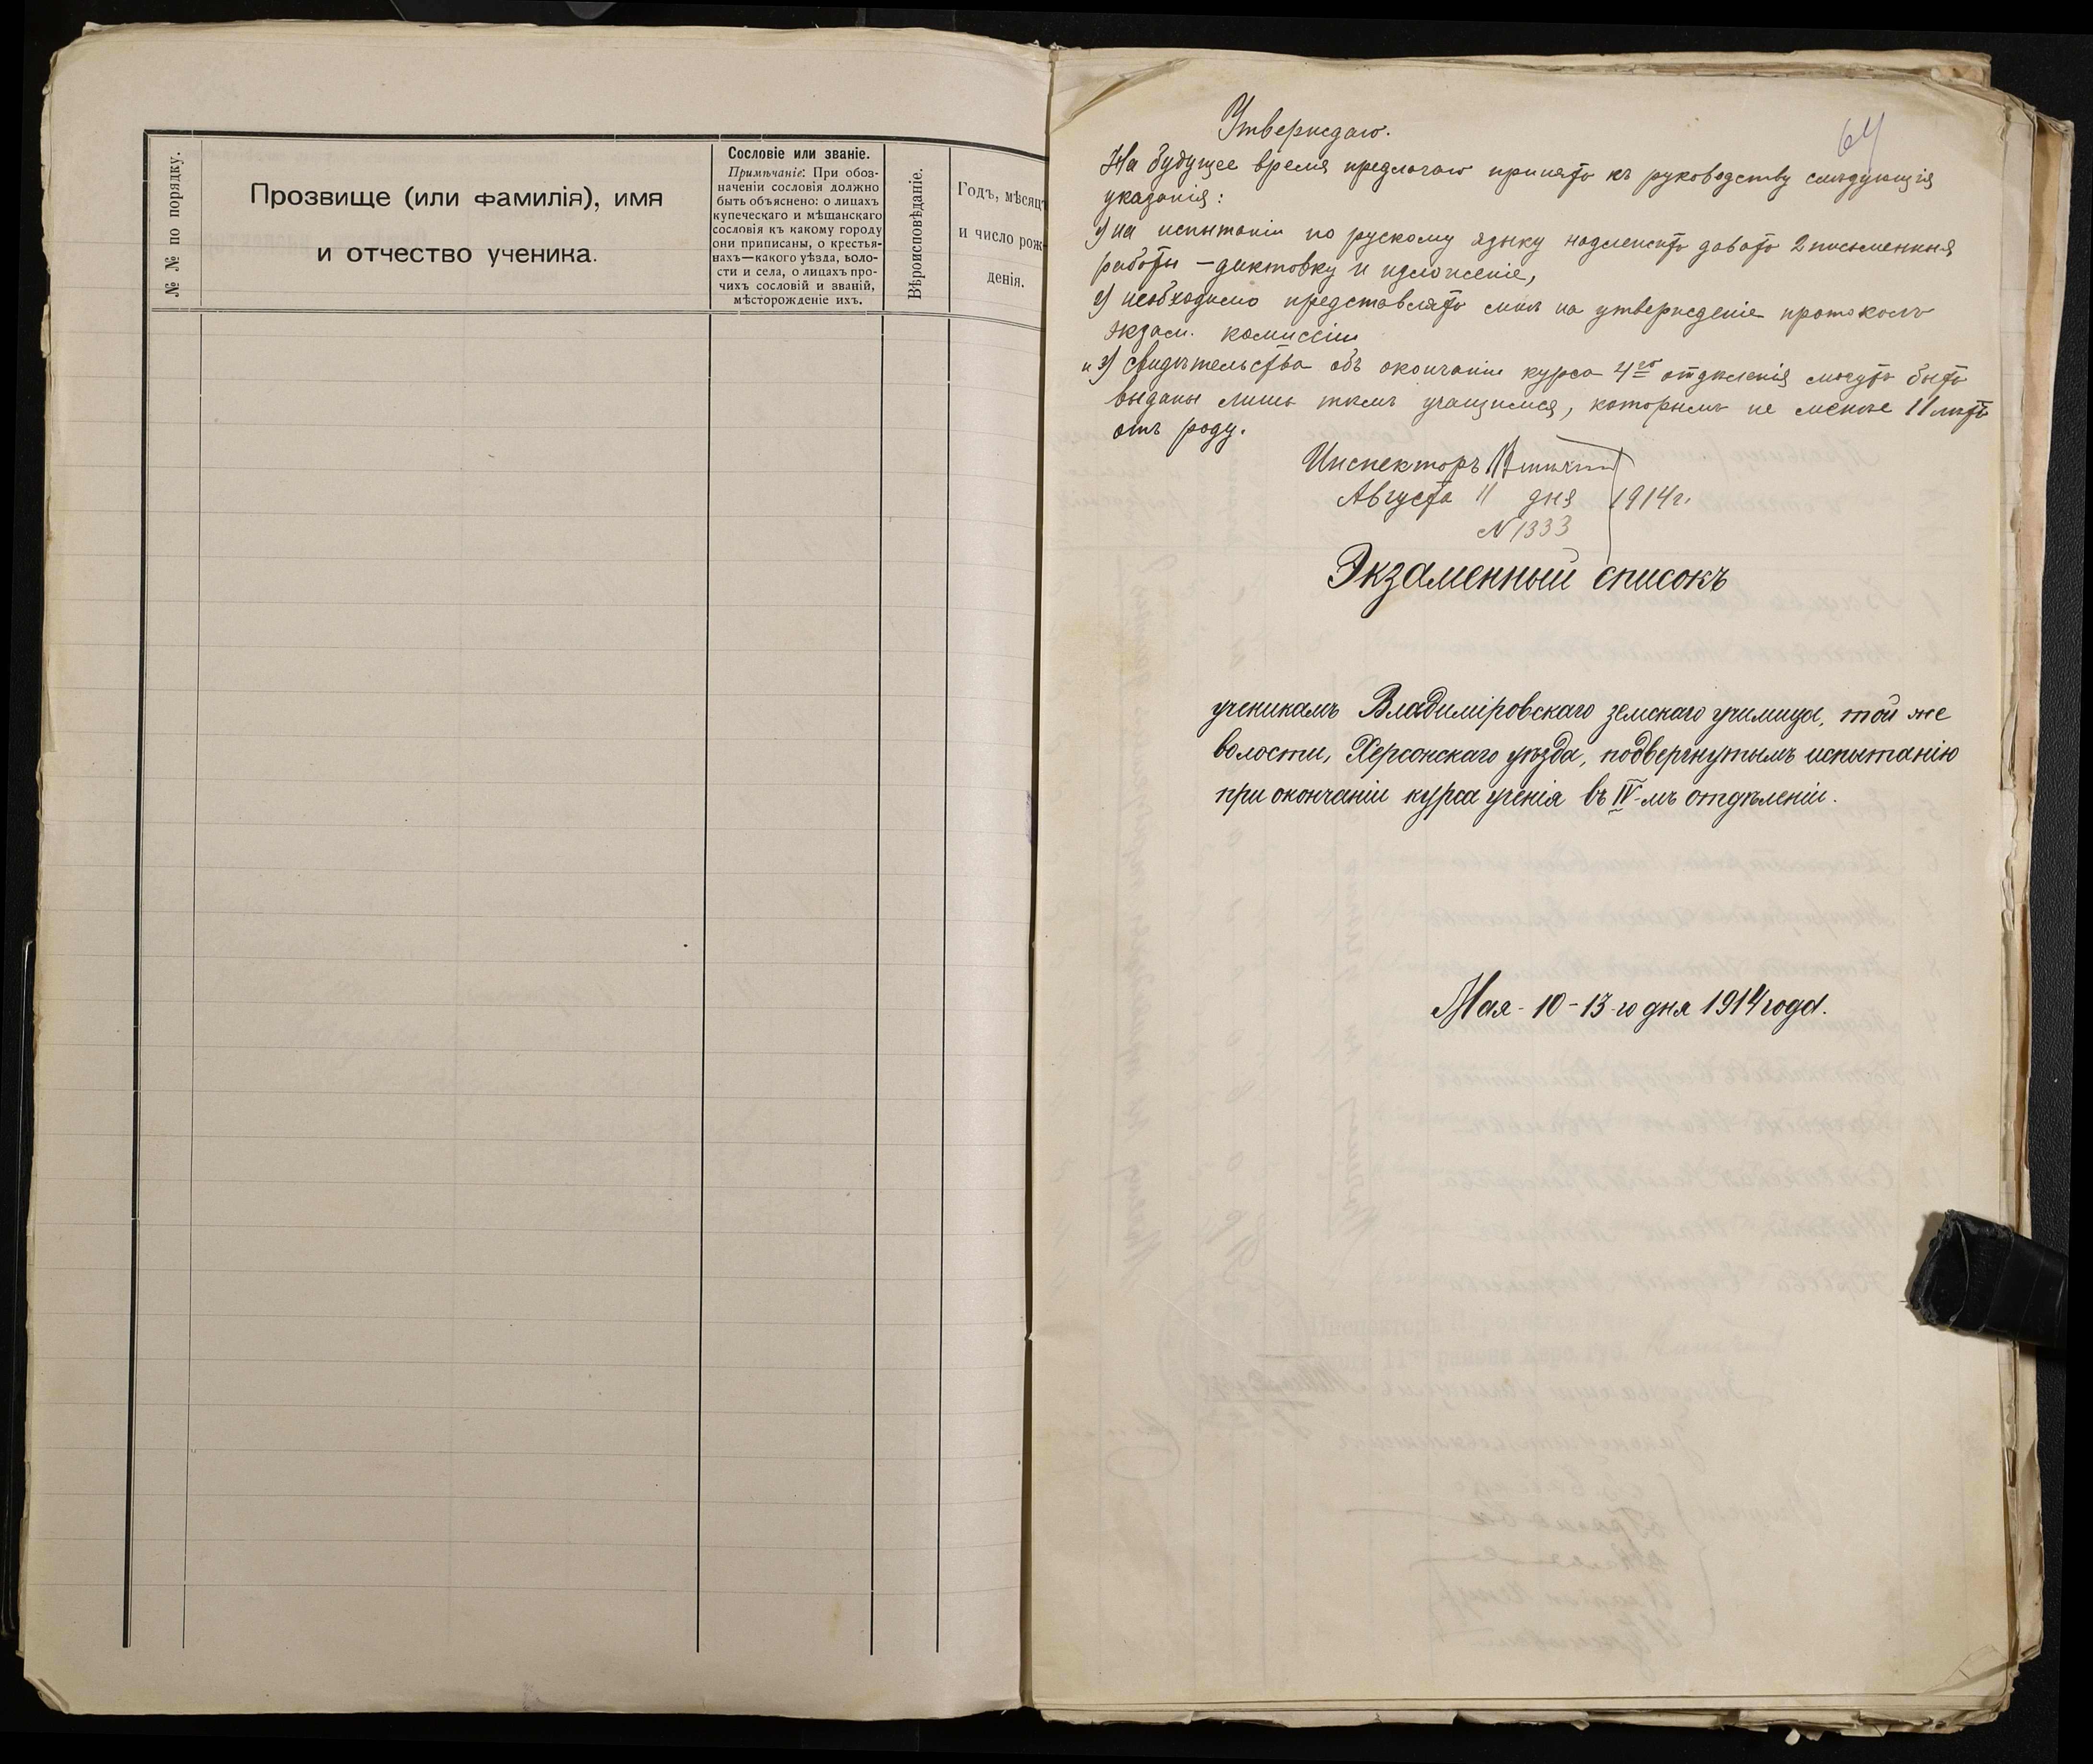 № № по порядку.
Прозвище (или фамилія), имя
и отчество ученика.
Сословіе или званіе.
Примѣчаніе: При обоз-
наченіи сословія должно
быть объяснено: о лицахъ
купеческаго и мѣщанскаго
сословія къ какому городу
они приписаны, о крестья-
нахъ—какого уѣзда, воло-
сти и села, о лицахъ про-
чихъ сословій и званій,
мѣсторожденіе ихъ.
Вѣроисповѣданіе.
Годъ, мѣсяцъ
и число рож-
денія.
64
Утверждаю.
На будущее время предлагаю принять къ руководству слѣдующія
указанія:
1) на испытаніи по рускому языку надлежитъ давать 2 письменныя
работы – диктовку и изложеніе,
2) необходимо представлять мнѣ на утвержденіе протоколъ
экзам. комиссіи
и 3) свидѣтельства объ окончаніи курса 4го отдѣленія могутъ быть
выданы лишь тѣмъ учащимся, которымъ не менѣе 11 лѣтъ
отъ роду.
Инспекторъ
Августа 11 дня 1914 г.
N 1333
Экзаменный списокъ
ученикамъ Владиміровскаго земскаго училища, той же
волости, Херсонскаго уѣзда, подвергнутымъ испытанію
при окончаніи курса ученія въ IV-мъ отдѣленіи.
Мая - 10 - 13-го дня 1914 года.